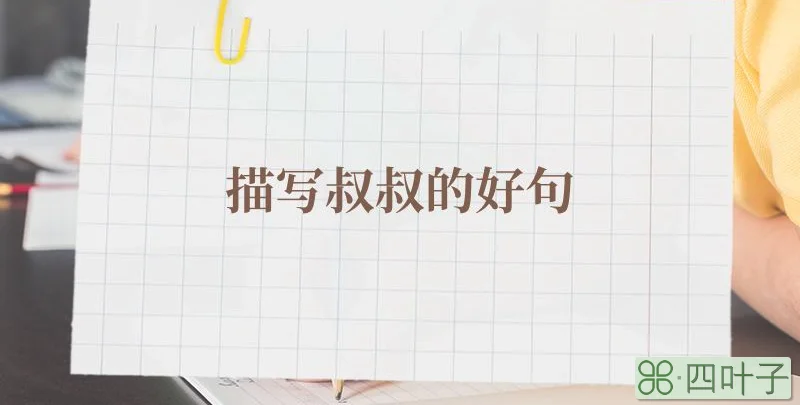 描写叔叔的好句
四叶子